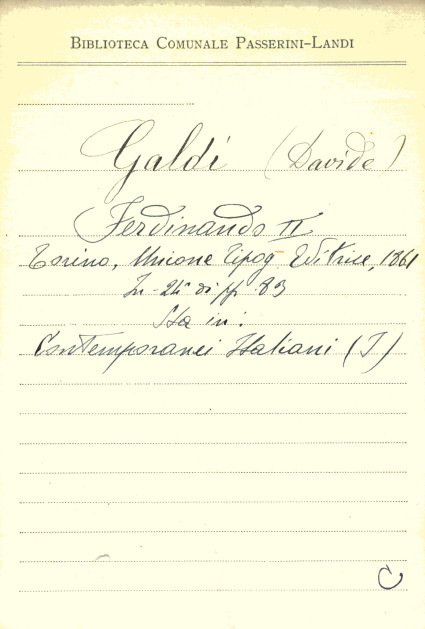 BIBLIOTECA COMUNALE PASSERINI-LANDI
Galdi (Davide)
Ferdinando II
Torino, Unione Tipog Editrice, 1861
In-24° di pp. 83
Sta in:
Contemporanei Italiani (I)
C